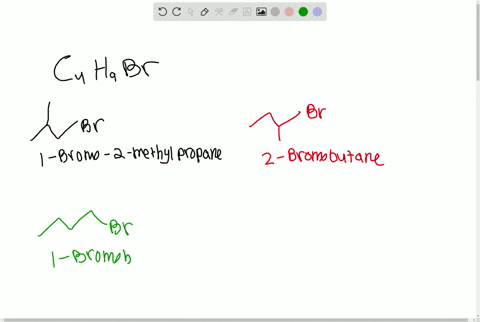 C4H9Br
Br
1-Bromo-2-methylpropane
Br
2-Bromobutane
Br
1-Bromob